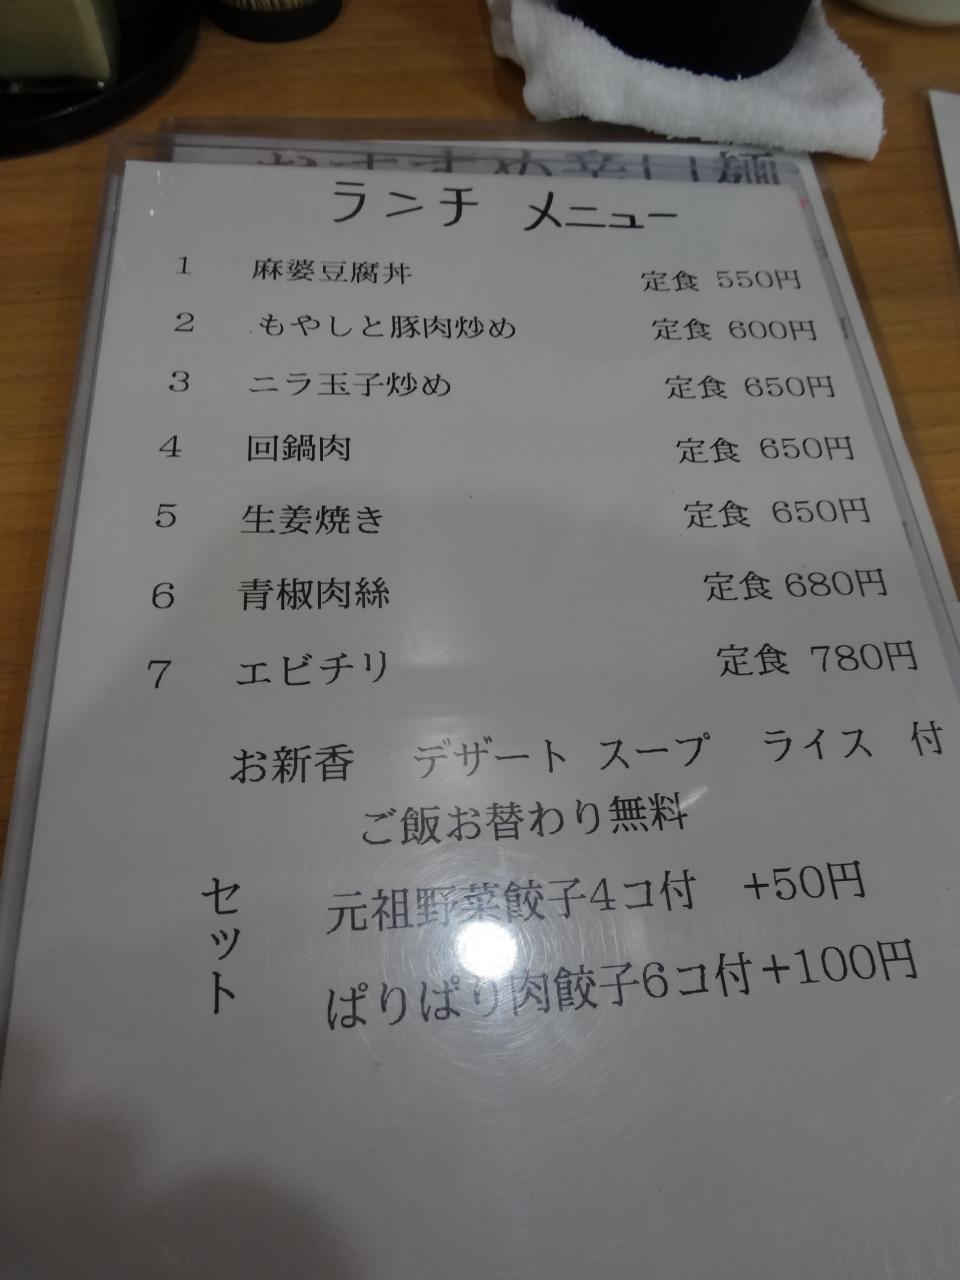 おすすめ辛口麺
ランチ メニュー
1 麻婆豆腐丼 定食 550円
2 もやしと豚肉炒め 定食 600円
3 ニラ玉子炒め 定食 650円
4 回鍋肉 定食 650円
5 生姜焼き 定食 650円
6 青椒肉絲 定食 680円
7 エビチリ 定食 780円
お新香 デザート スープ ライス 付
ご飯お替わり無料
セット
元祖野菜餃子4コ付 +50円
ぱりぱり肉餃子6コ付+100円